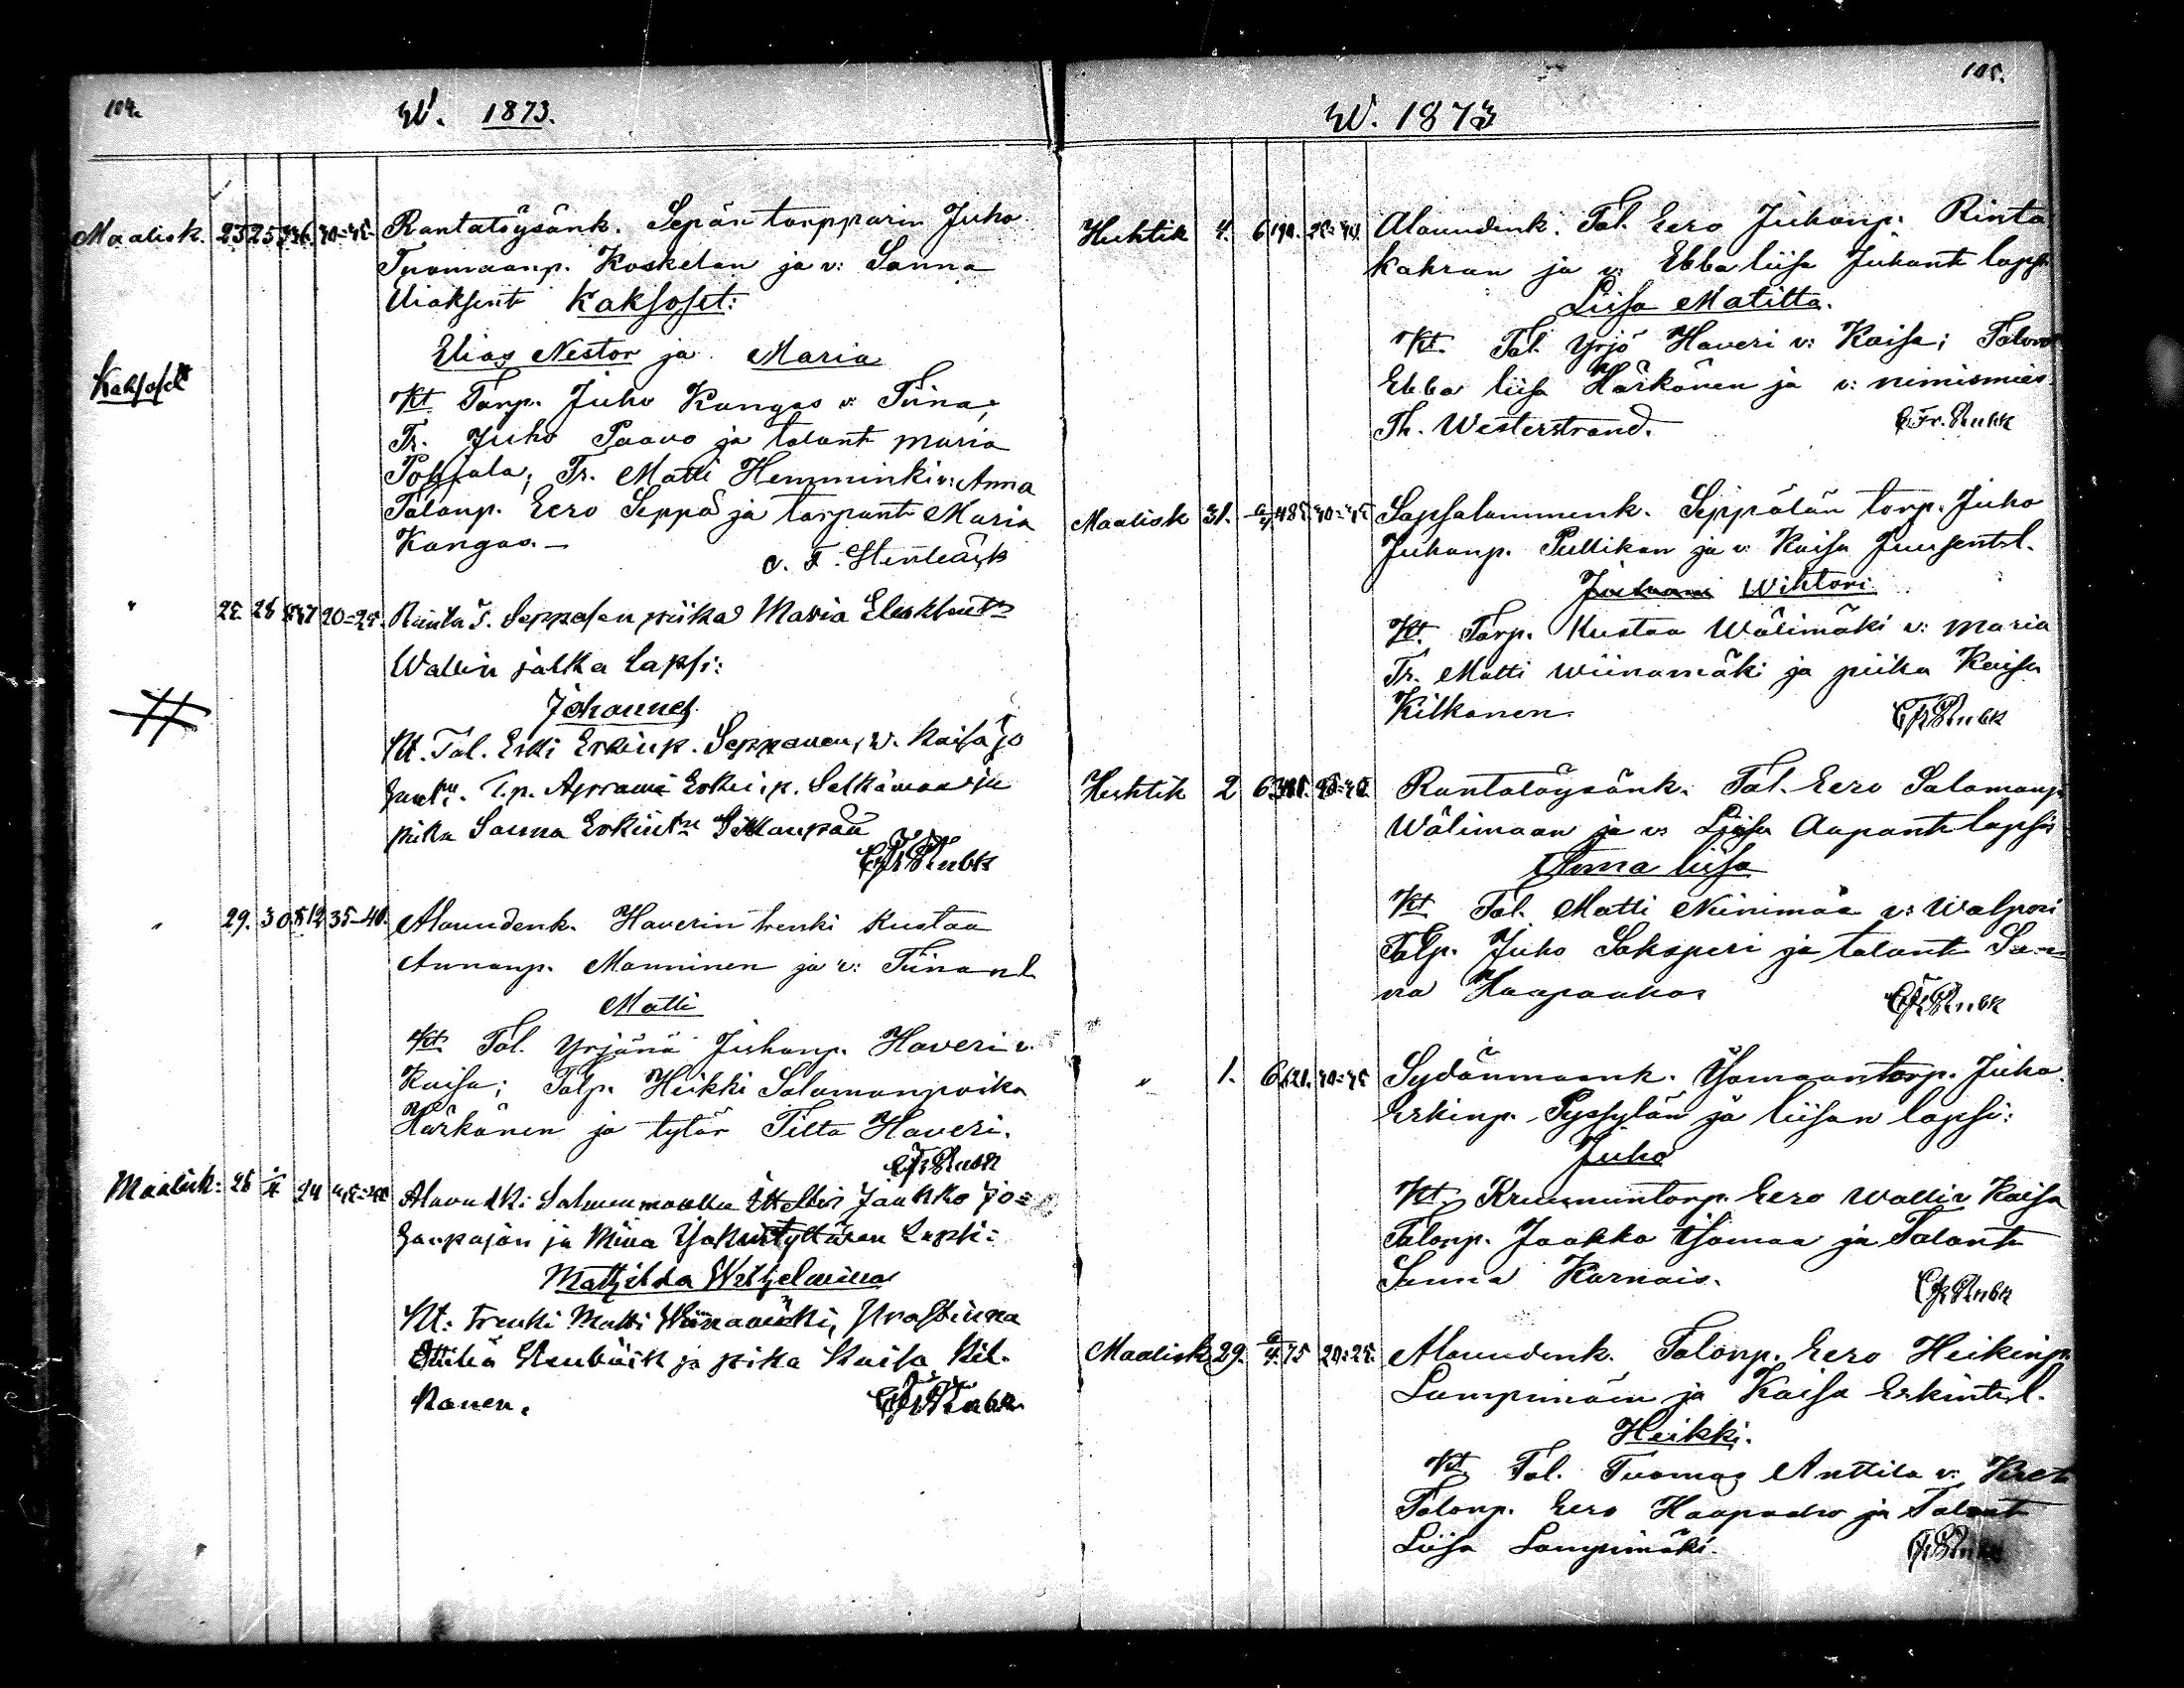 104.
W. 1873.
Maalisk. 23 25 336. 40=45. Rantatöysänk. Sepän torpparin Juho
Tuomaanp. Koskelan ja v: Sanna
Eliaksent Kaksoset:
Elias Nestor ja Maria
Kaksoset
Kt Torp. Juho Kangas v: Tiina;
Tr. Juho Paavo ja talont Maria
Pohjala; Tr. Matti Hemminki v: Anna
Talonp. Eero Seppä ja torpant Maria
Kangas.—
C. F. Stenbäck
" 25. 28 20=25. Ranta T. Seppäsen piika Maria
Wallin jalka Lapsi:
Johannes.
Kt. Tal. Erki Erkinp. Seppänen, v. Kaisa Jo
T.p. Aprami Erkinp. Selkämaa ja
piika Sanna Erkint.
" 29. 30 512 35-40. Alavudenk. Haverin trenki Kustaa
Annanp. Manninen ja v: Tiinan l.
Matti
Kt Tal. Yrjänä Juhanp. Haveri v.
Kaisa; Talp. Heikki Salamonpoika
Härkänen ja tytär Tilta Haveri.
Maalisk: 28 24 Alavudk: Salmenmaalla Jaakko Jo=
ja Miina tyttären Lapsi:
Mathilda Wilhelmina
Kt: trenki Matti Wiinamäki, Ruostinna
Ottilia Stenbäck ja piika Kaisa Kil-
konen.
105.
W. 1873
Huhtik 4. 6 190. Alavudenk. Tal. Eero Juhanp. Rinta
kahran ja v: Ebba liisa Juhant laps
Liisa Matilta.
Kt. Tal. Yrjö Haveri v: Kaisa; Talont
Ebba liisa Härkönen ja v: nimismies
Th. Westerstrand.
Maalisk 31. 6/4 485. 40=45 Sapsalammenk. Seppälän torp. Juho
Juhanp. Pullikan ja v: Kaisa Juusent l.
Juhani Wihtori
Kt. Torp. Kustaa Wälimäki v: Maria
Tr. Matti Wiinamäki ja piika Kaisa
Kilkonen.
Huhtik 2 6 Rantatöysänk. Tal. Eero Salamonp.
Wälimaan ja v: Liisa Aapant lapsi
Anna liisa
Kt Tal. Matti Niinimaa v: Walpori
Talp. Juho Saksperi ja talont San
na Haapaaho.
" 1. 6 621. 40=45 Sydänmaank. Isomaantorp. Juho
Erkinp. Pyssylän ja liisan lapsi:
Juho
Kt. Kruununtorp. Eero Wallin Kaisa
Talonp. Jaakko Isomaa ja Talont
Sanna Karnais.
Maalisk 29. 6/4. 75 20=25. Alavudenk. Talonp. Eero Heikinp.
Lampimäin ja Kaisa Erkint l.
Heikki.
Kt. Tal. Tuomas Anttila v: Kret
Talonp. Eero Haapaaho ja Talont
Liisa Lampimäki.